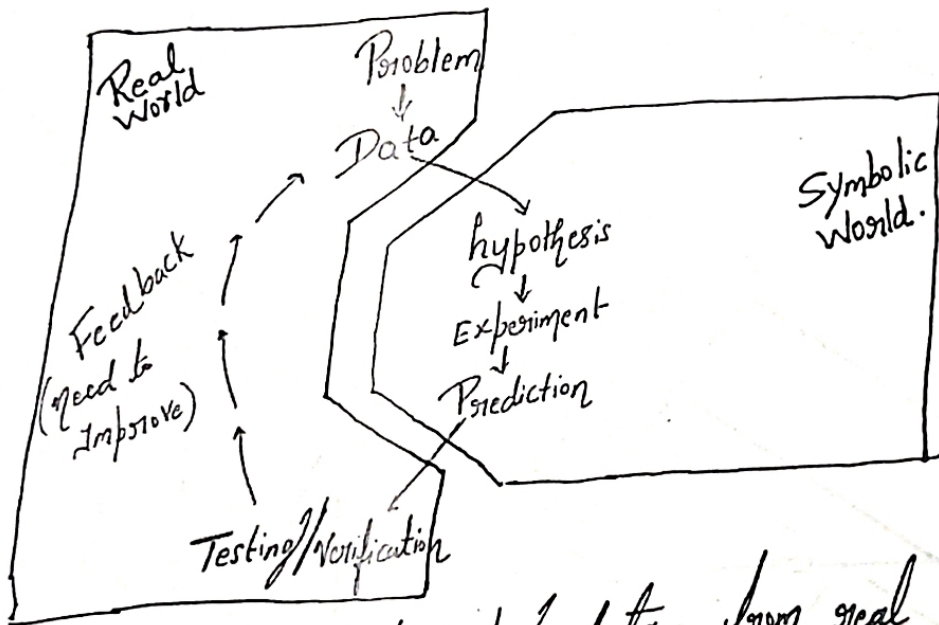 Real
World
Problem
Data
Symbolic
World.
hypothesis
Experiment
Prediction
Feedback
(need to
Improve)
Testing/Verification
from real